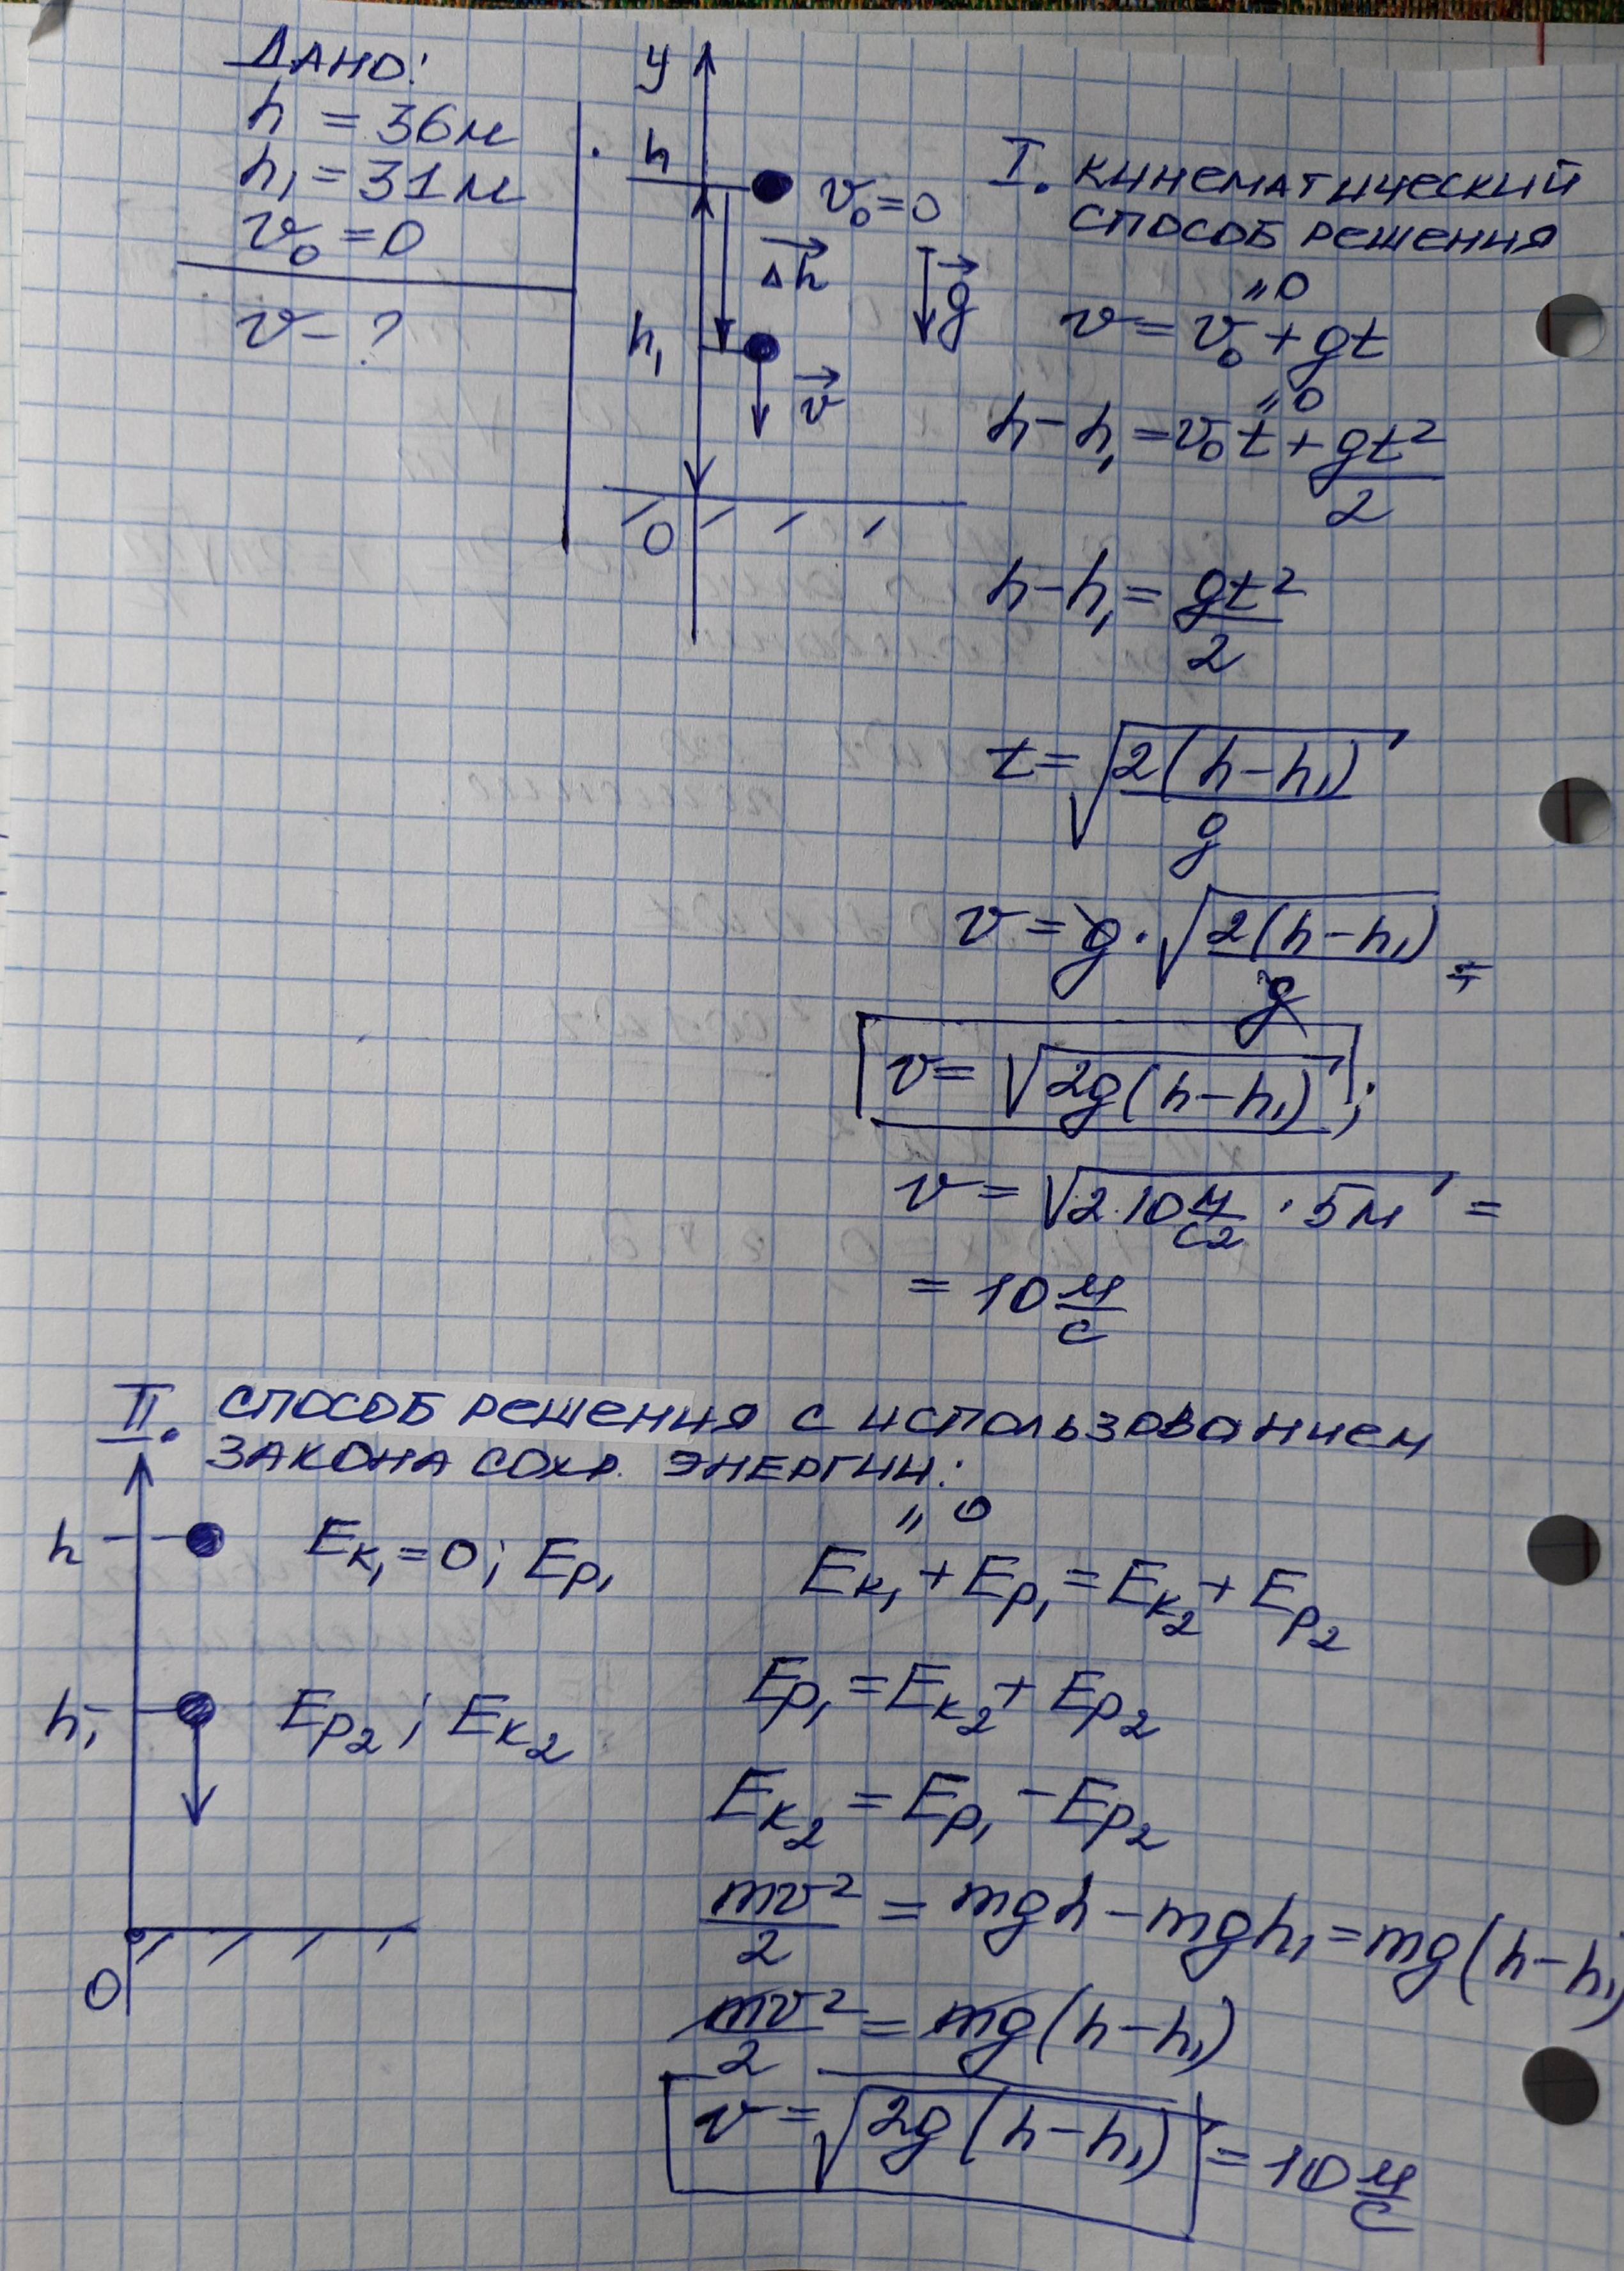 ДАНО:
h = 36м
h₁ = 31м
v₀ = 0
v – ?
y
h
v₀ = 0
Δh
g
h₁
v
0
I. КИНЕМАТИЧЕСКИЙ
СПОСОБ РЕШЕНИЯ
"0
v = v₀ + gt
"0
h – h₁ = v₀t + gt²/2
h – h₁ = gt²/2
t = √(2(h – h₁)/g)
v = g · √(2(h – h₁)/g) =
v = √(2g(h – h₁));
v = √(2·10 м/с² · 5м) =
= 10 м/с
II. СПОСОБ РЕШЕНИЯ С ИСПОЛЬЗОВАНИЕМ
ЗАКОНА СОХР. ЭНЕРГИИ:
h
Eк₁ = 0; Eр₁
h₁
Eр₂; Eк₂
0
"0
Eк₁ + Eр₁ = Eк₂ + Eр₂
Eр₁ = Eк₂ + Eр₂
Eк₂ = Eр₁ – Eр₂
mv²/2 = mgh – mgh₁ = mg(h – h₁)
mv²/2 = mg(h – h₁)
v = √(2g(h – h₁)) = 10 м/с